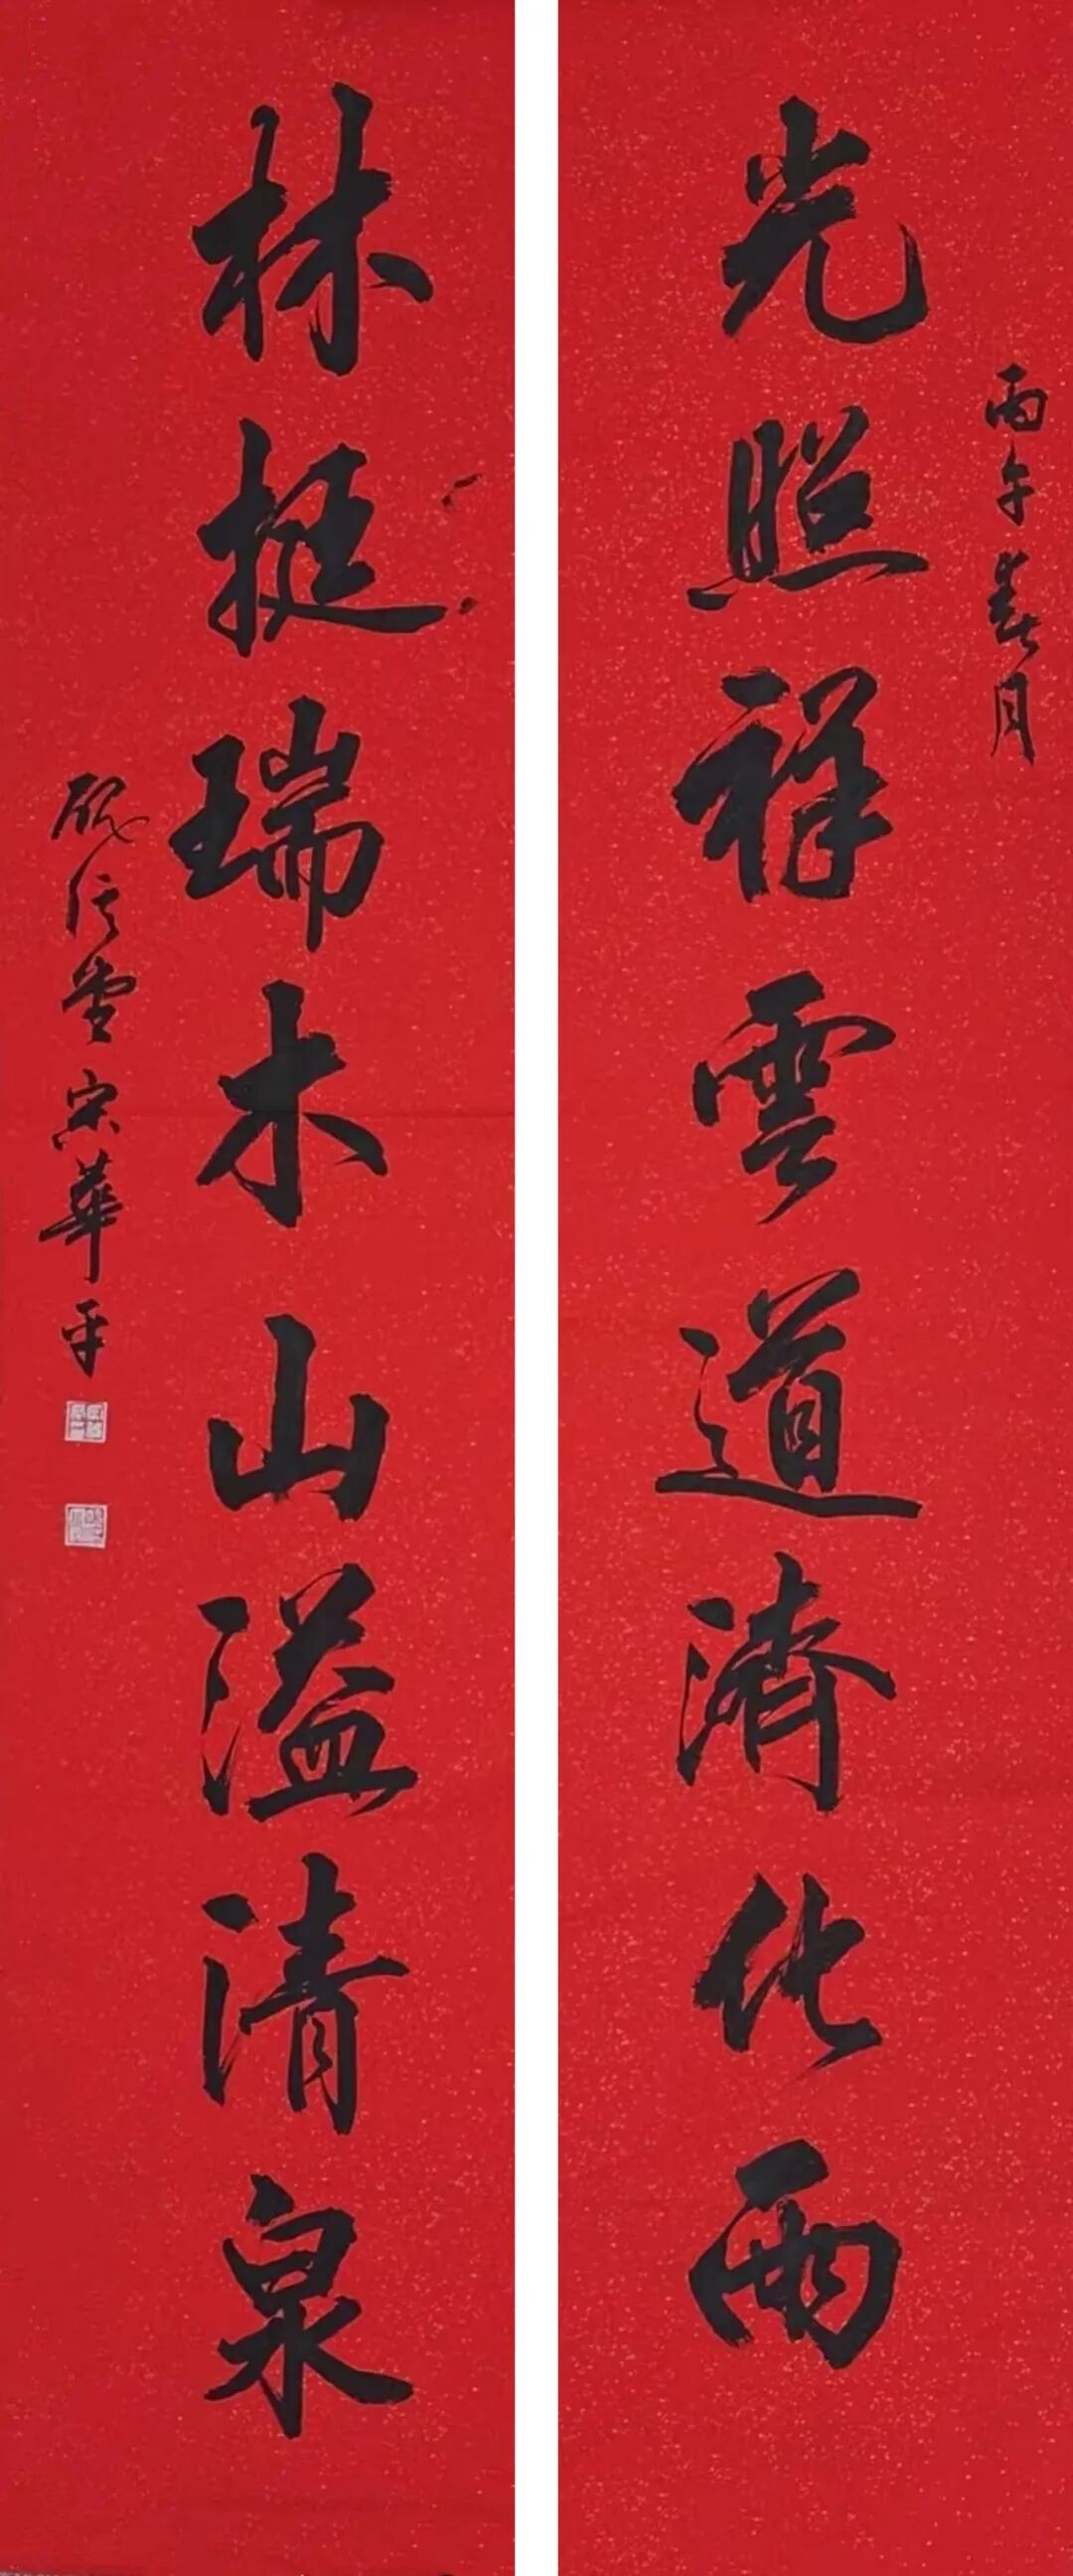 丙午春月
光照祥雲道濟化雨
林挺瑞木山溢清泉
砚信堂宋華平